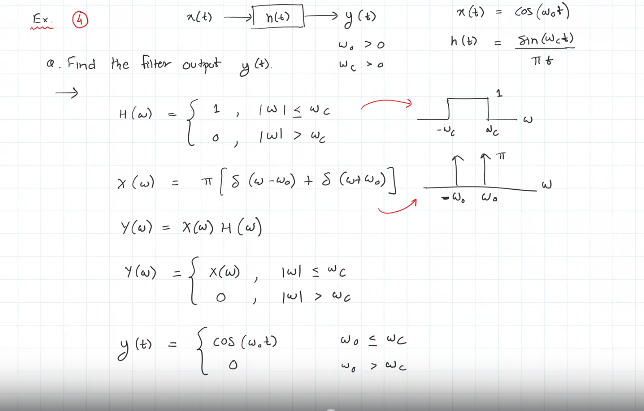 Ex. 4
x(t) → h(t) → y(t)
x(t) = cos(ω₀t)
ω₀ > 0
h(t) = sin(ωct) / πt
ωc > 0
Q. Find the filter output y(t).
→
H(ω) = { 1 , |ω| ≤ ωc
0 , |ω| > ωc
1
-ωc ωc ω
X(ω) = π [ δ(ω-ω₀) + δ(ω+ω₀) ]
π
-ω₀ ω₀ ω
Y(ω) = X(ω) H(ω)
Y(ω) = { X(ω) , |ω| ≤ ωc
0 , |ω| > ωc
y(t) = { cos(ω₀t) ω₀ ≤ ωc
0 ω₀ > ωc